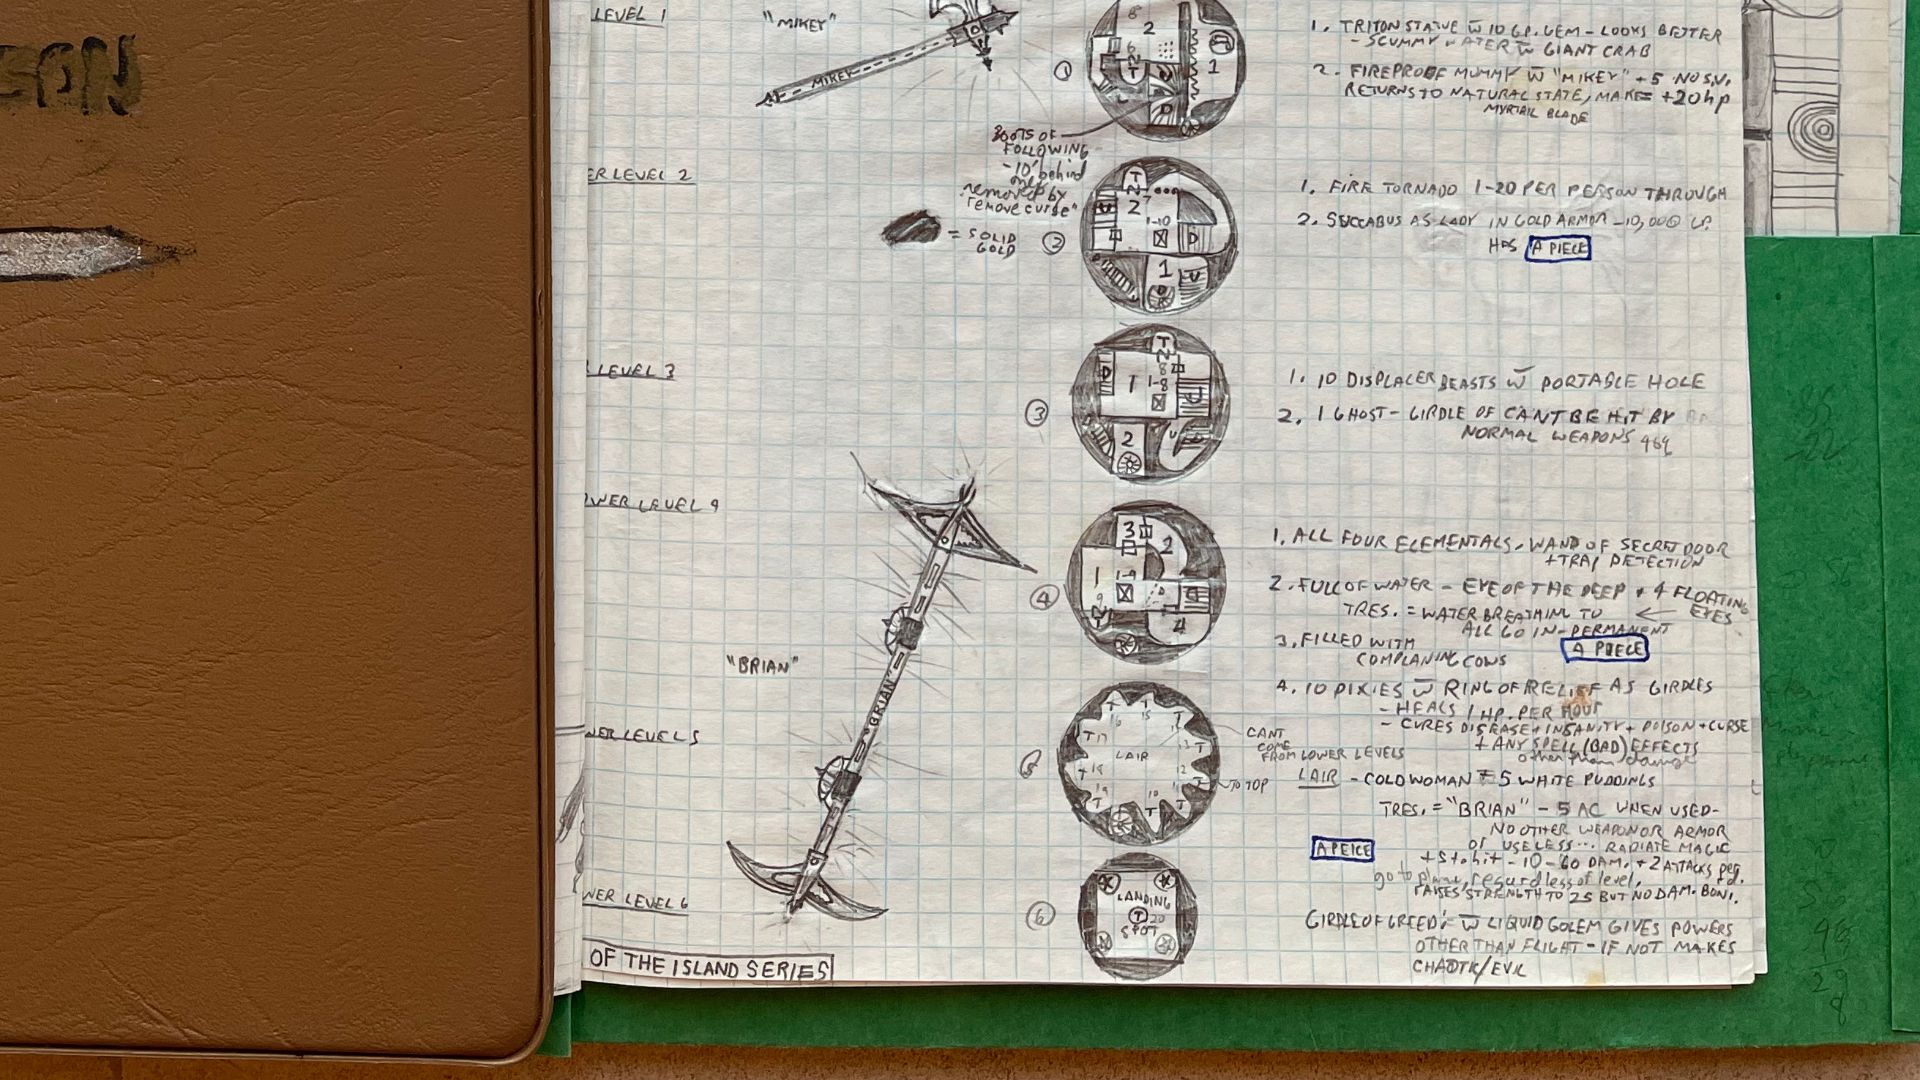 SON
LEVEL 1
"MIKEY"
MIKEY
1. TRITON STATUE W̄ 10 GP. GEM - LOOKS BETTER
- SCUMMY WATER W̄ GIANT CRAB
2. FIREPROOF MUMMY W̄ "MIKEY" +5 NO S.V.
RETURNS TO NATURAL STATE, MAKE +20 hp
BLADE
1
2
1
T
D
BOOTS OF
FOLLOWING
- 10' behind
removed by
"remove curse"
ER LEVEL 2
= SOLID
GOLD
2
T
2
1-10
D
1
U
1. FIRE TORNADO 1-20 PER PERSON THROUGH
2. SUCCABUS AS LADY IN GOLD ARMOR - 10,000 GP.
HAS A PIECE
LEVEL 3
3
T
D
1
1-8
U
2
1. 10 DISPLACER BEASTS W̄ PORTABLE HOLE
2. 1 GHOST - GIRDLE OF CANT BE HIT BY
NORMAL WEAPONS
WER LEVEL 4
4
3
2
1
1-9
4
1. ALL FOUR ELEMENTALS, WAND OF SECRET DOOR
+ TRAP DETECTION
2. FULL OF WATER - EYE OF THE DEEP + 4 FLOATING
EYES
TRES. = WATER BREATHING TO
ALL GO IN - PERMANENT
3. FILLED WITH
COMPLANING COWS
A PIECE
4. 10 PIXIES W̄ RING OF RELIEF AS GIRDLES
- HEALS 1 HP. PER HOUR
- CURES DISEASE + INSANITY + POISON + CURSE
+ ANY SPELL (BAD) EFFECTS
other than damage
"BRIAN"
"BRIAN"
WER LEVEL 5
5
LAIR
CANT
COME
FROM LOWER LEVELS
TO TOP
LAIR - COLD WOMAN + 5 WHITE PUDDINGS
TRES. = "BRIAN" - 5 AC WHEN USED -
NO OTHER WEAPON OR ARMOR
OF USELESS... RADIATE MAGIC
A PEICE
+5 to hit - 10-60 DAM. + 2 ATTACKS per.
go to regardless of level. rd.
RAISES STRENGTH TO 25 BUT NO DAM. BONI.
WER LEVEL 6
6
LANDING
T 20
SPOT
GIRDLE OF GREED: W̄ LIQUID GOLEM GIVES POWERS
OTHER THAN FLIGHT - IF NOT MAKES
CHAOTIC/EVIL
OF THE ISLAND SERIES